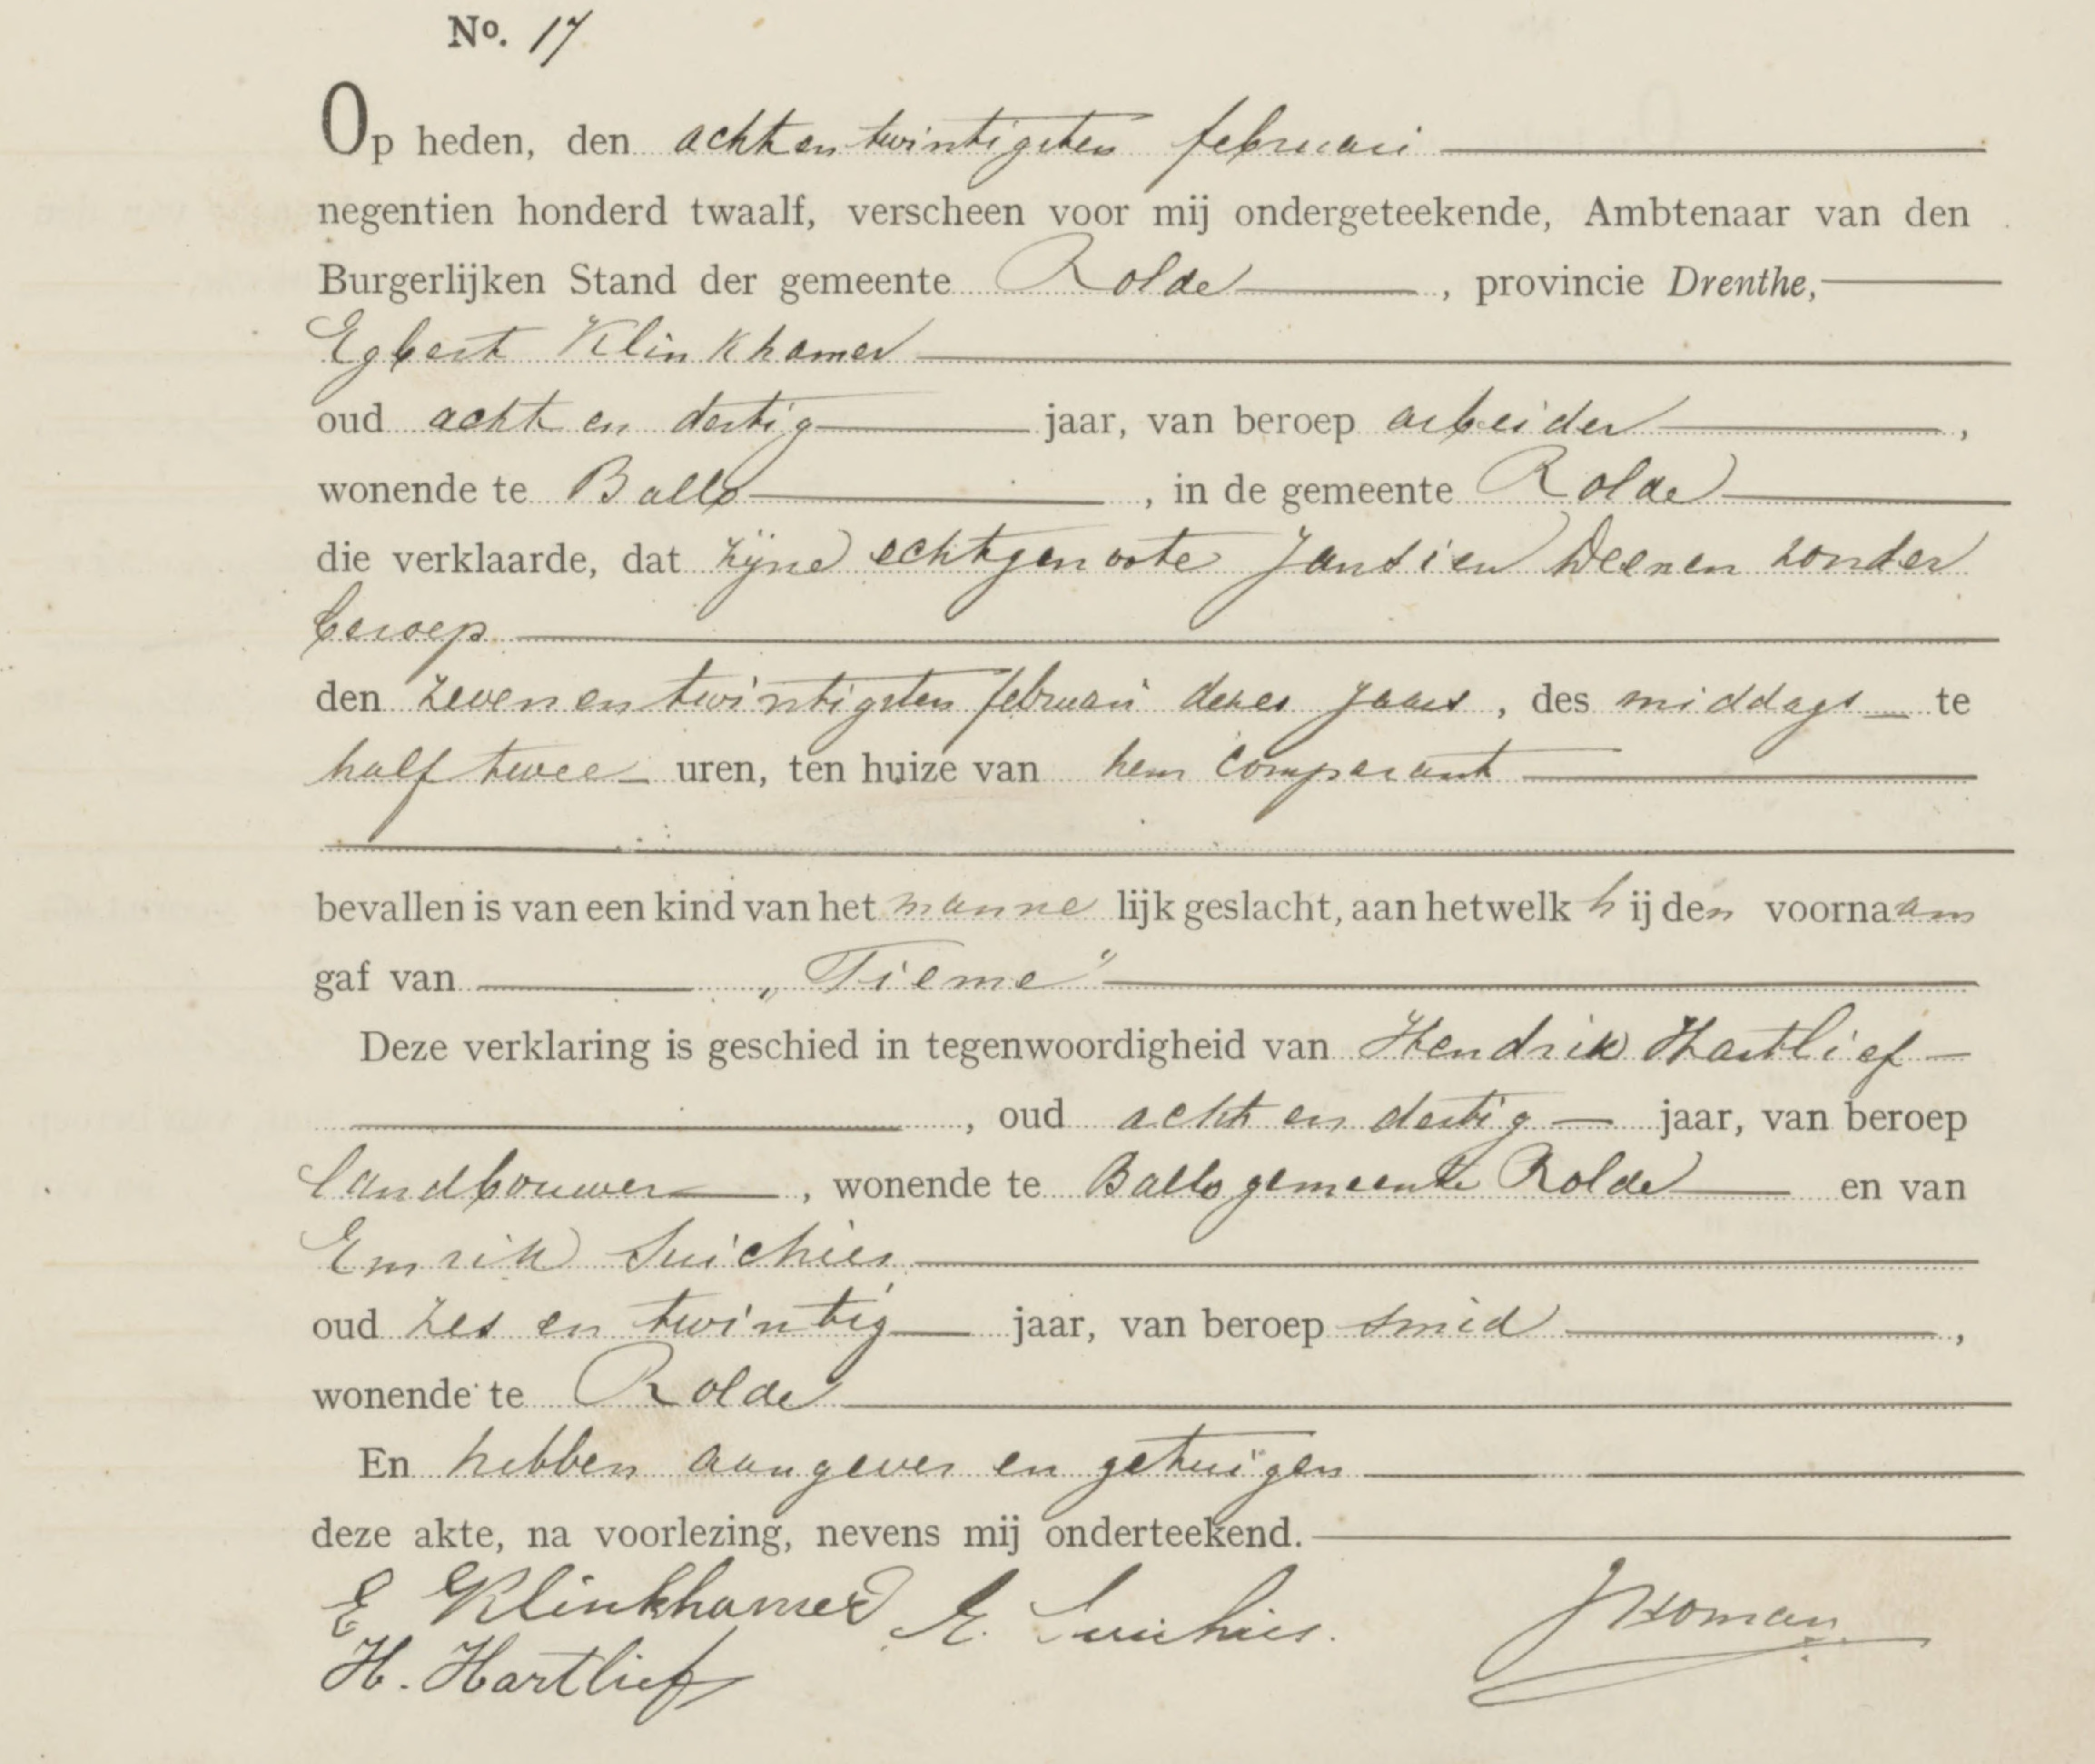 No. 17
Op heden, den achtentwintigsten februari
negentien honderd twaalf, verscheen voor mij ondergeteekende, Ambtenaar van den
Burgerlijken Stand der gemeente Rolde, provincie Drenthe,
Egbert Klinkhamer
oud acht en dertig jaar, van beroep arbeider,
wonende te Ballo, in de gemeente Rolde
die verklaarde, dat zijne echtgenoote Jansien Deenen zonder
beroep
den zevenentwintigsten februari dezes jaars, des middags te
half twee uren, ten huize van hem comparant
bevallen is van een kind van het mannelijk geslacht, aan hetwelk hij den voornaam
gaf van „Tieme”
Deze verklaring is geschied in tegenwoordigheid van Hendrik Hartlief
, oud acht en dertig jaar, van beroep
landbouwer, wonende te Ballo gemeente Rolde en van
Emrik Suichies
oud zes en twintig jaar, van beroep smid,
wonende te Rolde
En hebben aangever en getuigen
deze akte, na voorlezing, nevens mij onderteekend.
E Klinkhamer E. Suichies. JHoman
H. Hartlief